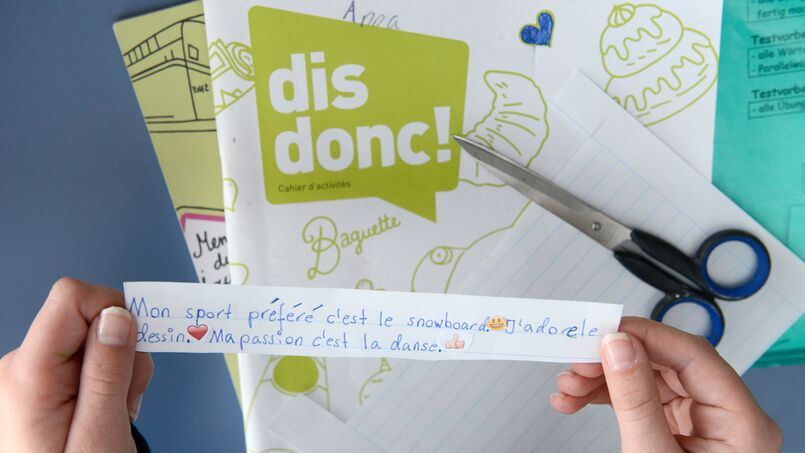 Anna
dis
donc!
Cahier d'activités
Baguette
fertig ma
Testvorbe
- alle Wört
- Parallelmi
Testvorbe
- alle Übun
Men
Mon sport préféré c'est le snowboard. J'adore le
dessin. Ma passion c'est la danse.